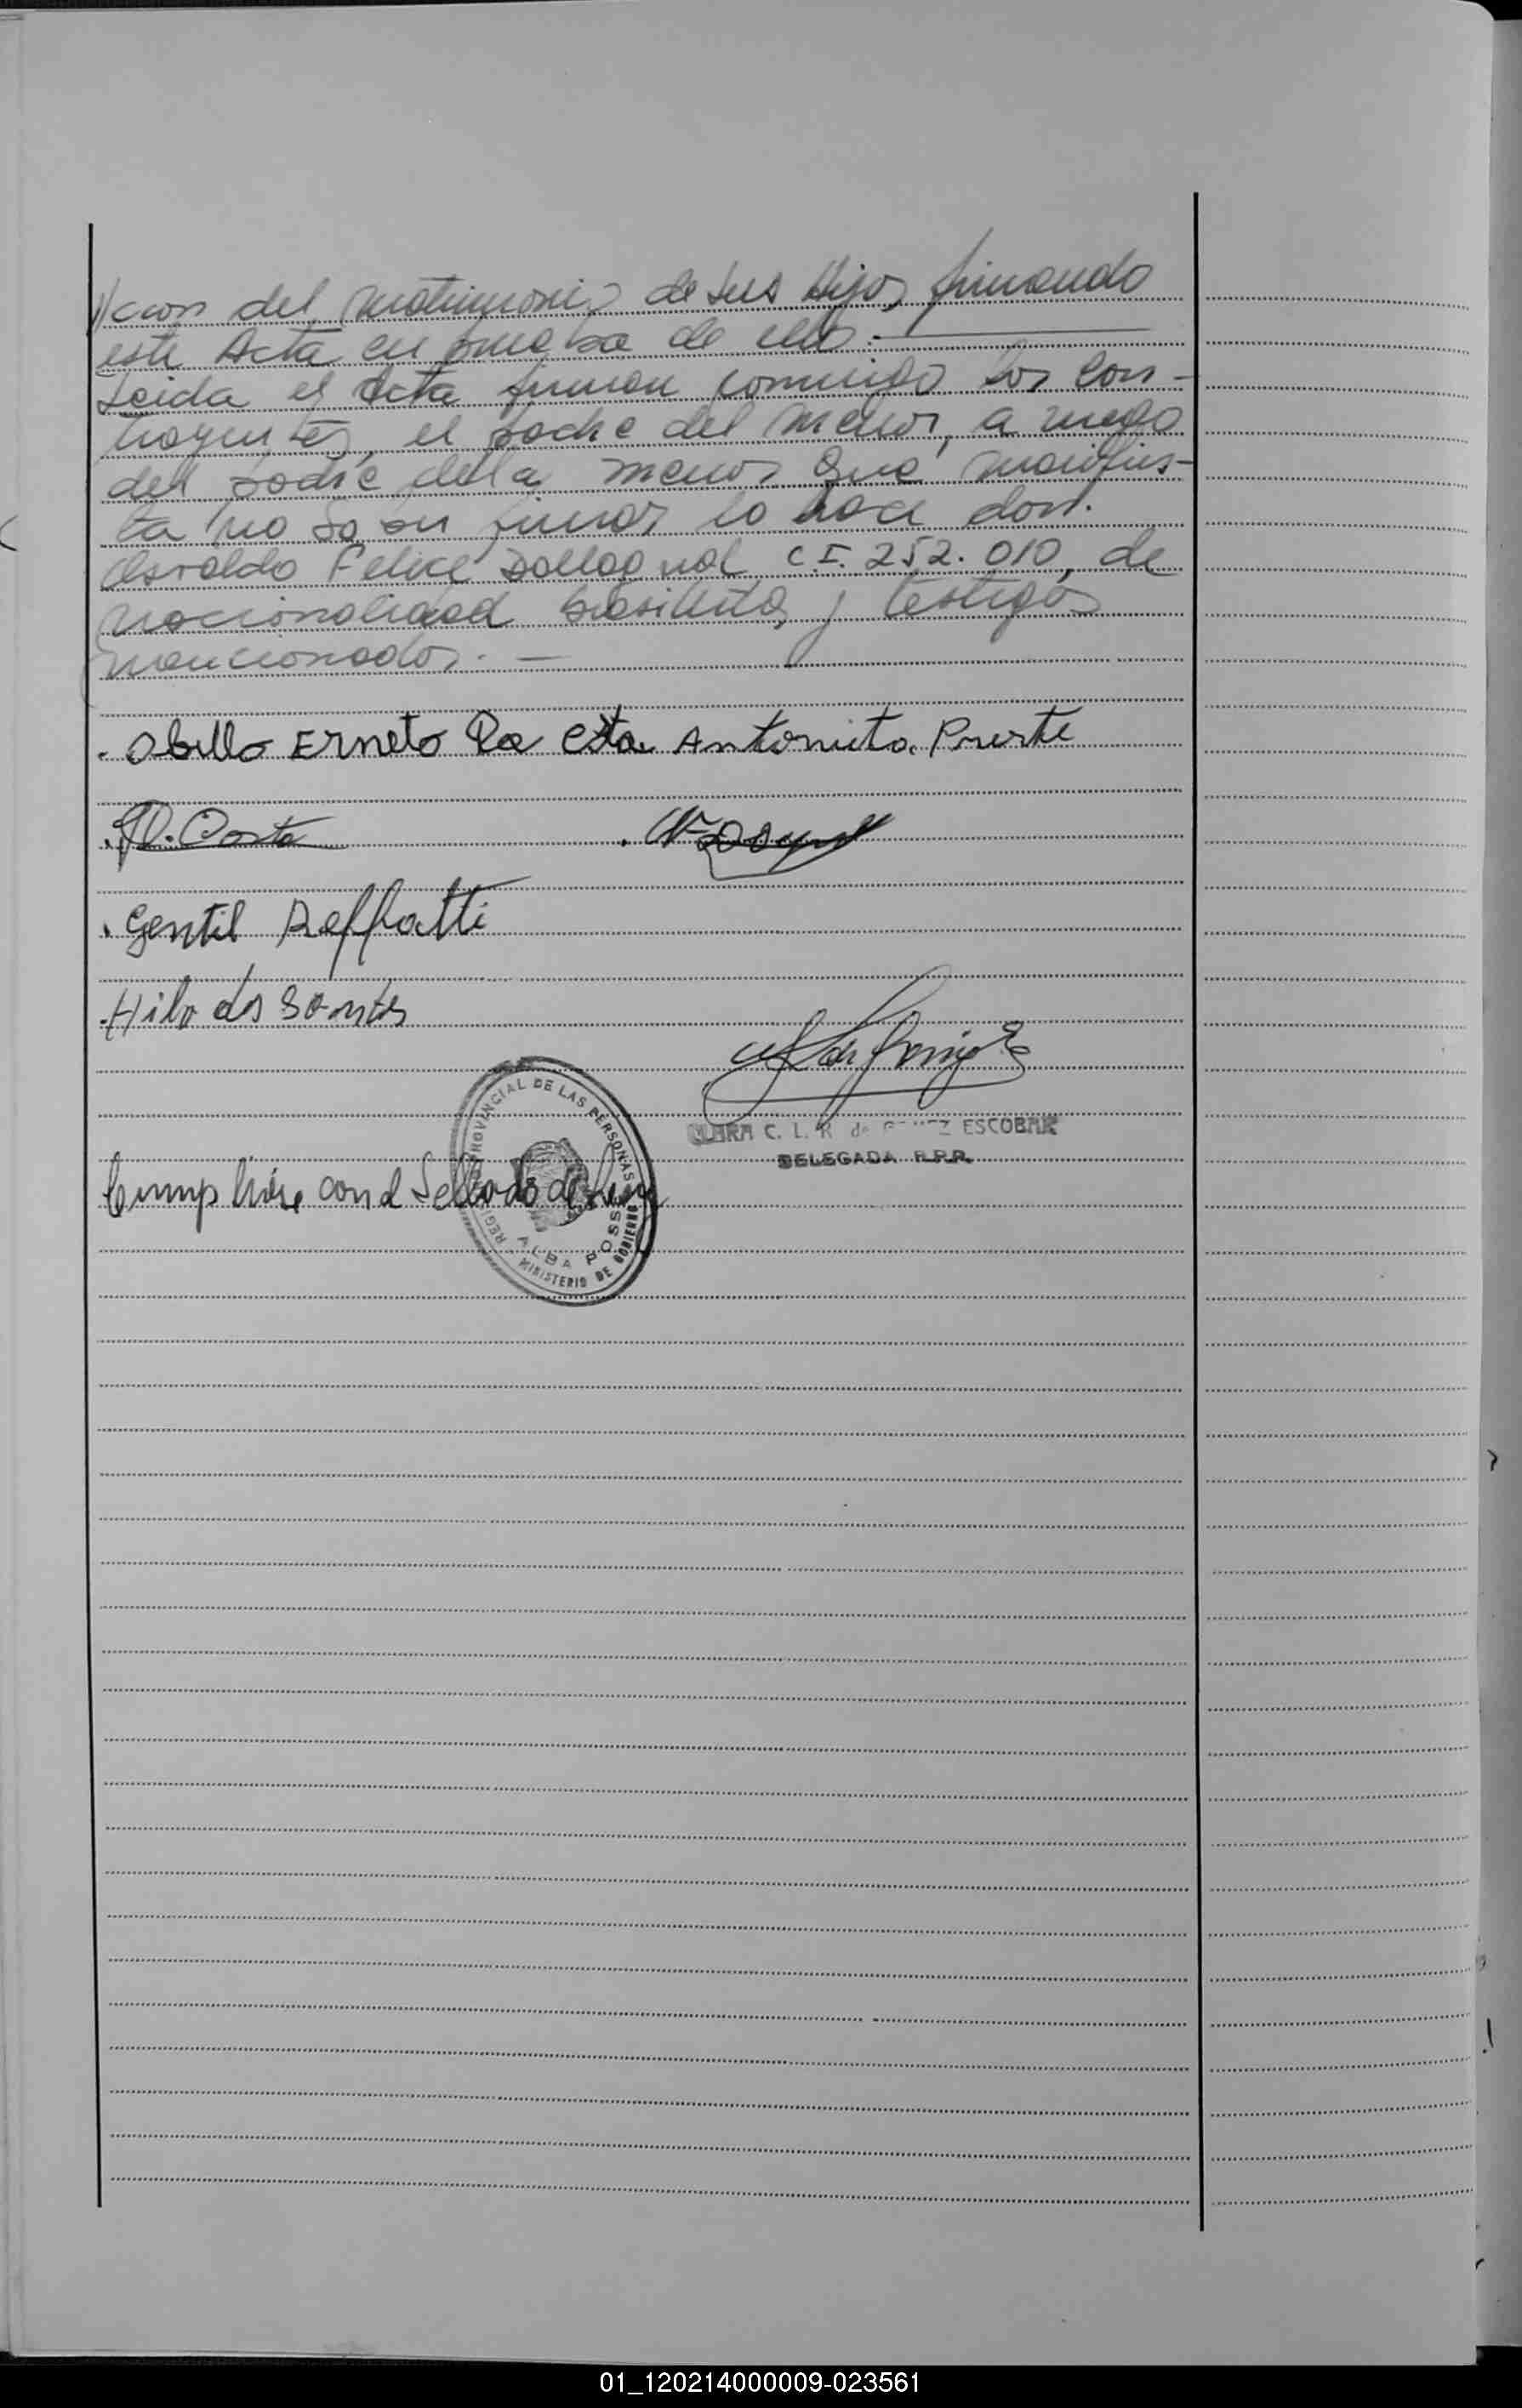 //cion del matrimonio de sus Hijos, firmando
este Acta en prueba de ello.-
Leida el Acta firman conmigo los Con-
trayentes, el padre del menor, a ruego
del padre della menor que manifies-
ta no saber firmar lo hace don.
Osvaldo Felice Dallagnol C.I. 252.010, de
nacionalidad brasileña, y testigos
mencionados. -
. Obillo Erneto Da Costa Antonieta Puerte
. Costa
. Gentil Reffatti
. Hilo dos Santos
PROVINCIAL DE LAS PERSONAS
ALBA POSSE
MINISTERIO DE GOBIERNO
CLARA C. L. R. de GOMEZ ESCOBAR
DELEGADA R.P.P.
Cumplióse con el Sellado de Ley
01_120214000009-023561